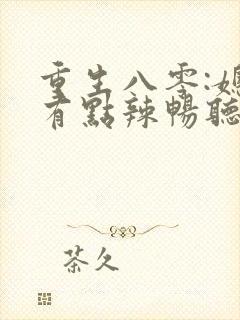 重生八零:媳
有點辣暢聽
茶久